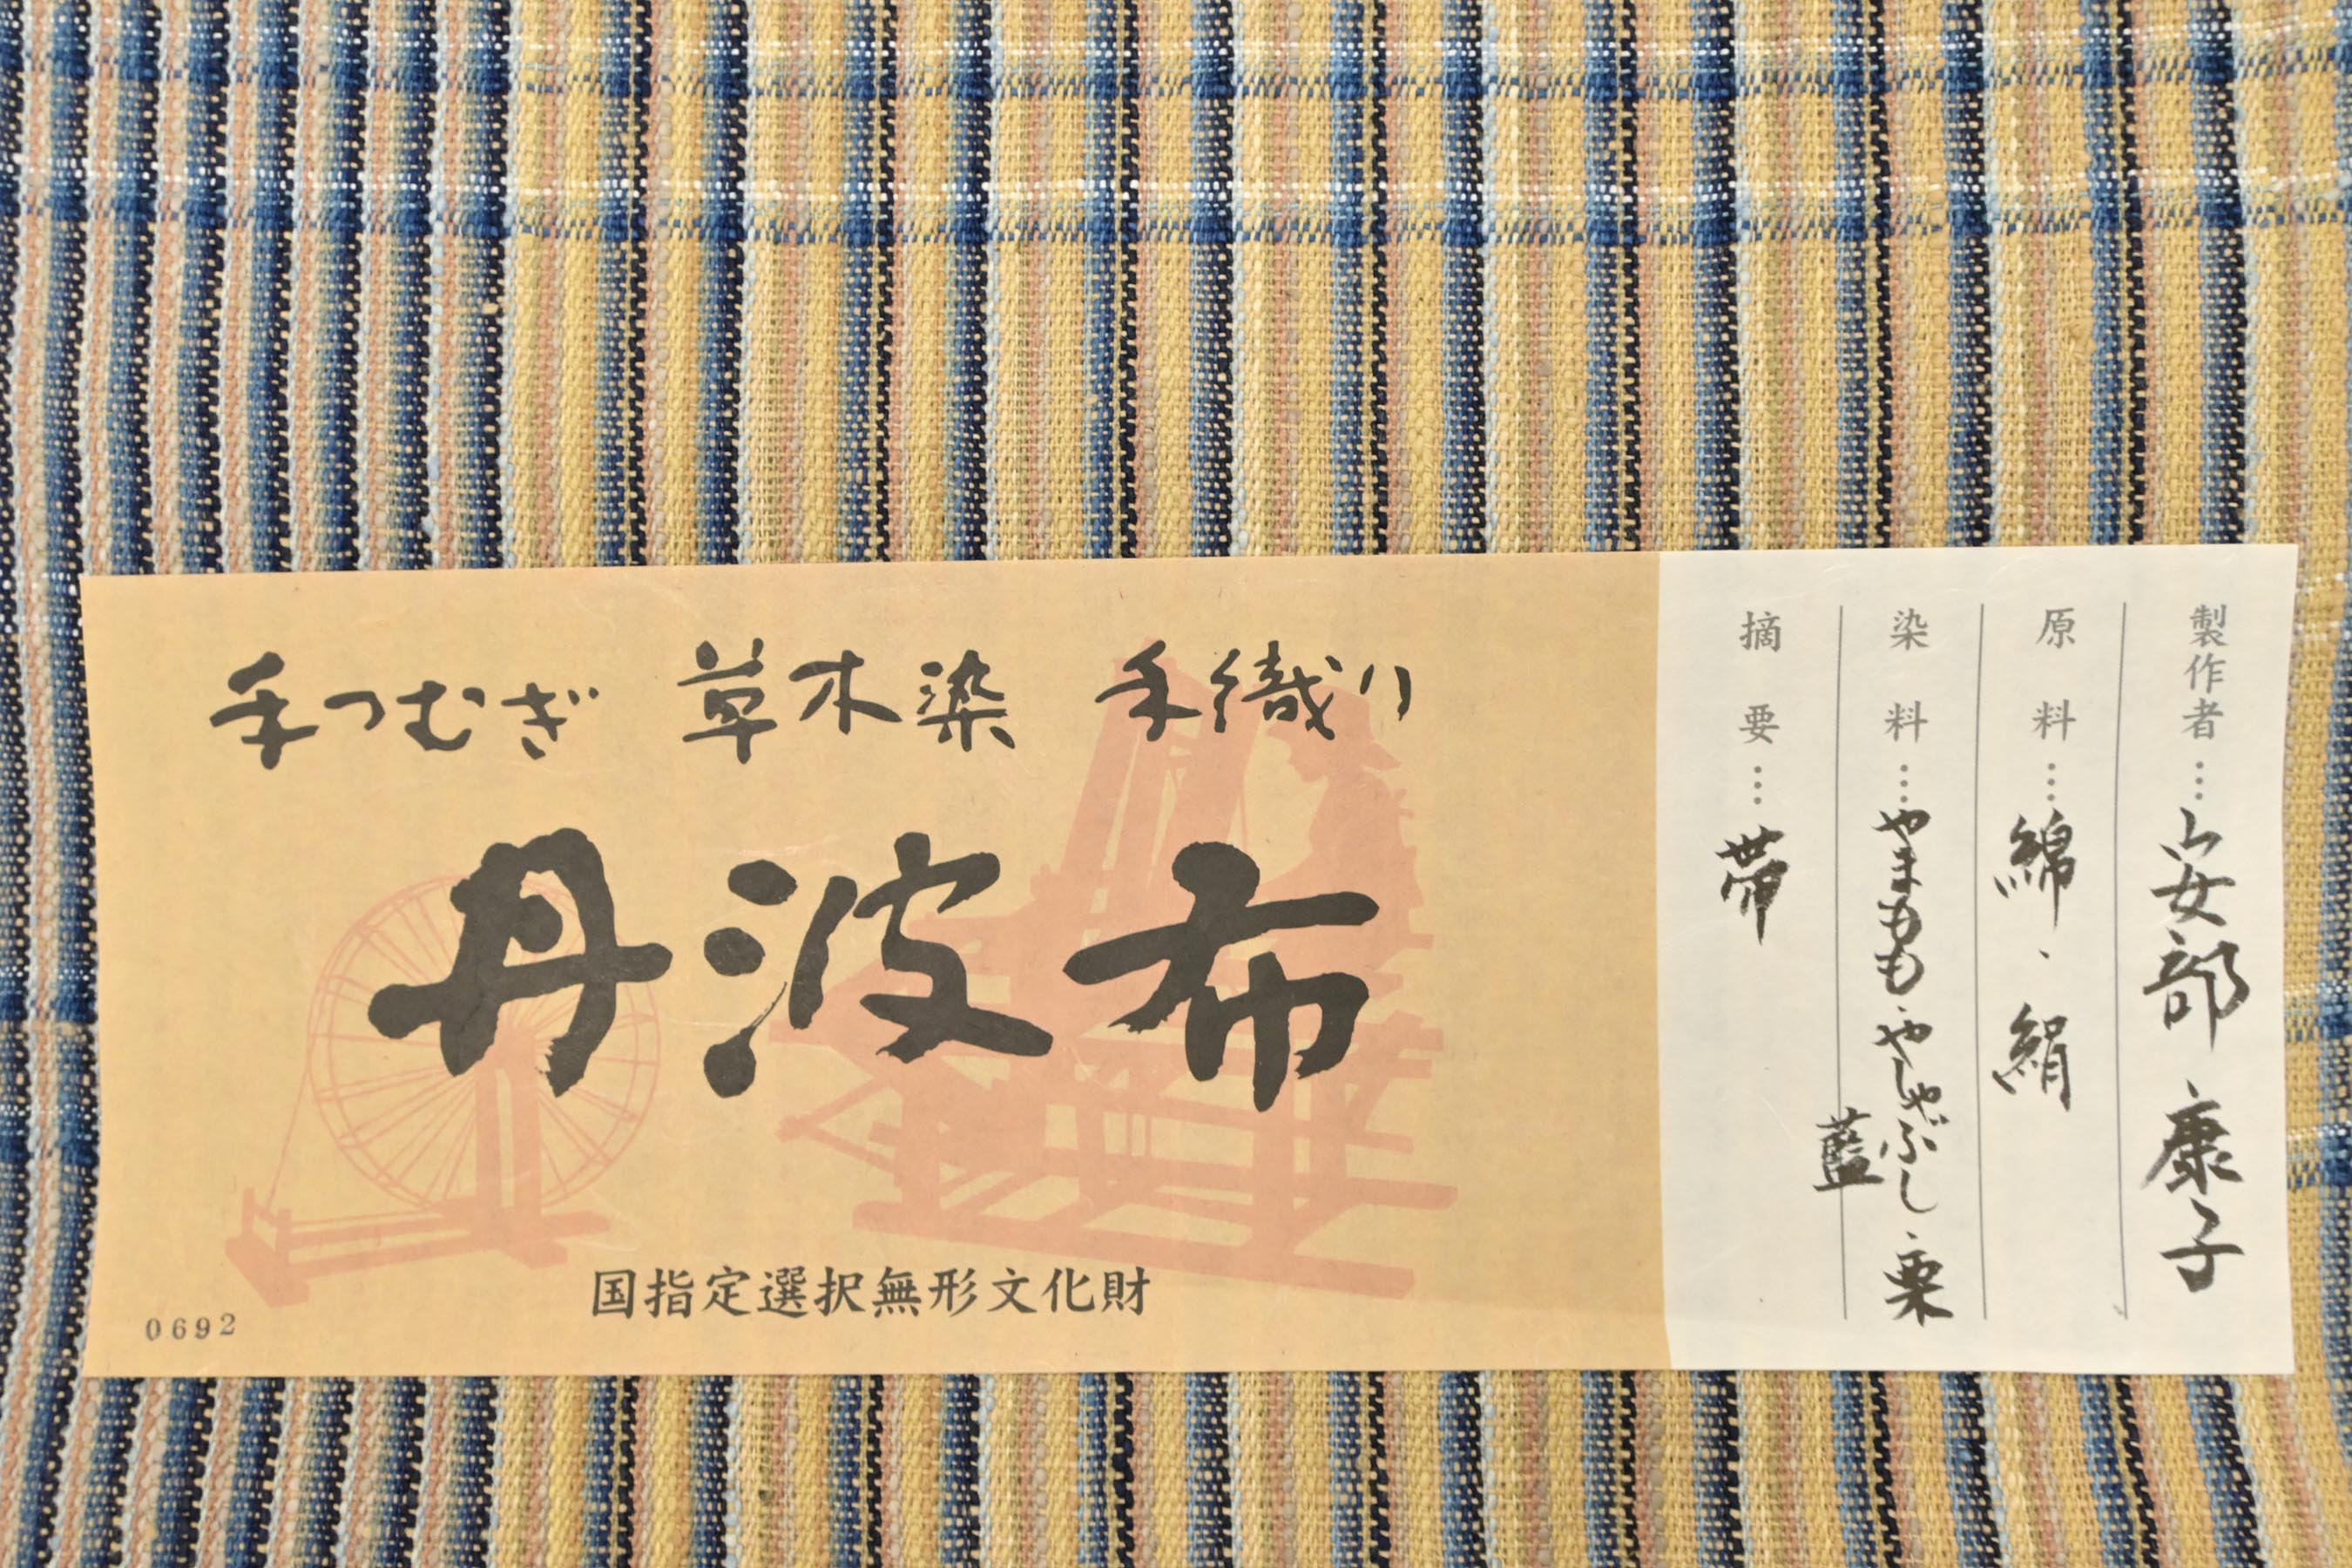 手つむぎ 草木染 手織り
丹波布
国指定選択無形文化財
0692
製作者…安部 康子
原料…綿、絹
染料…やまもも、やしゃぶし、栗
藍
摘要…帯